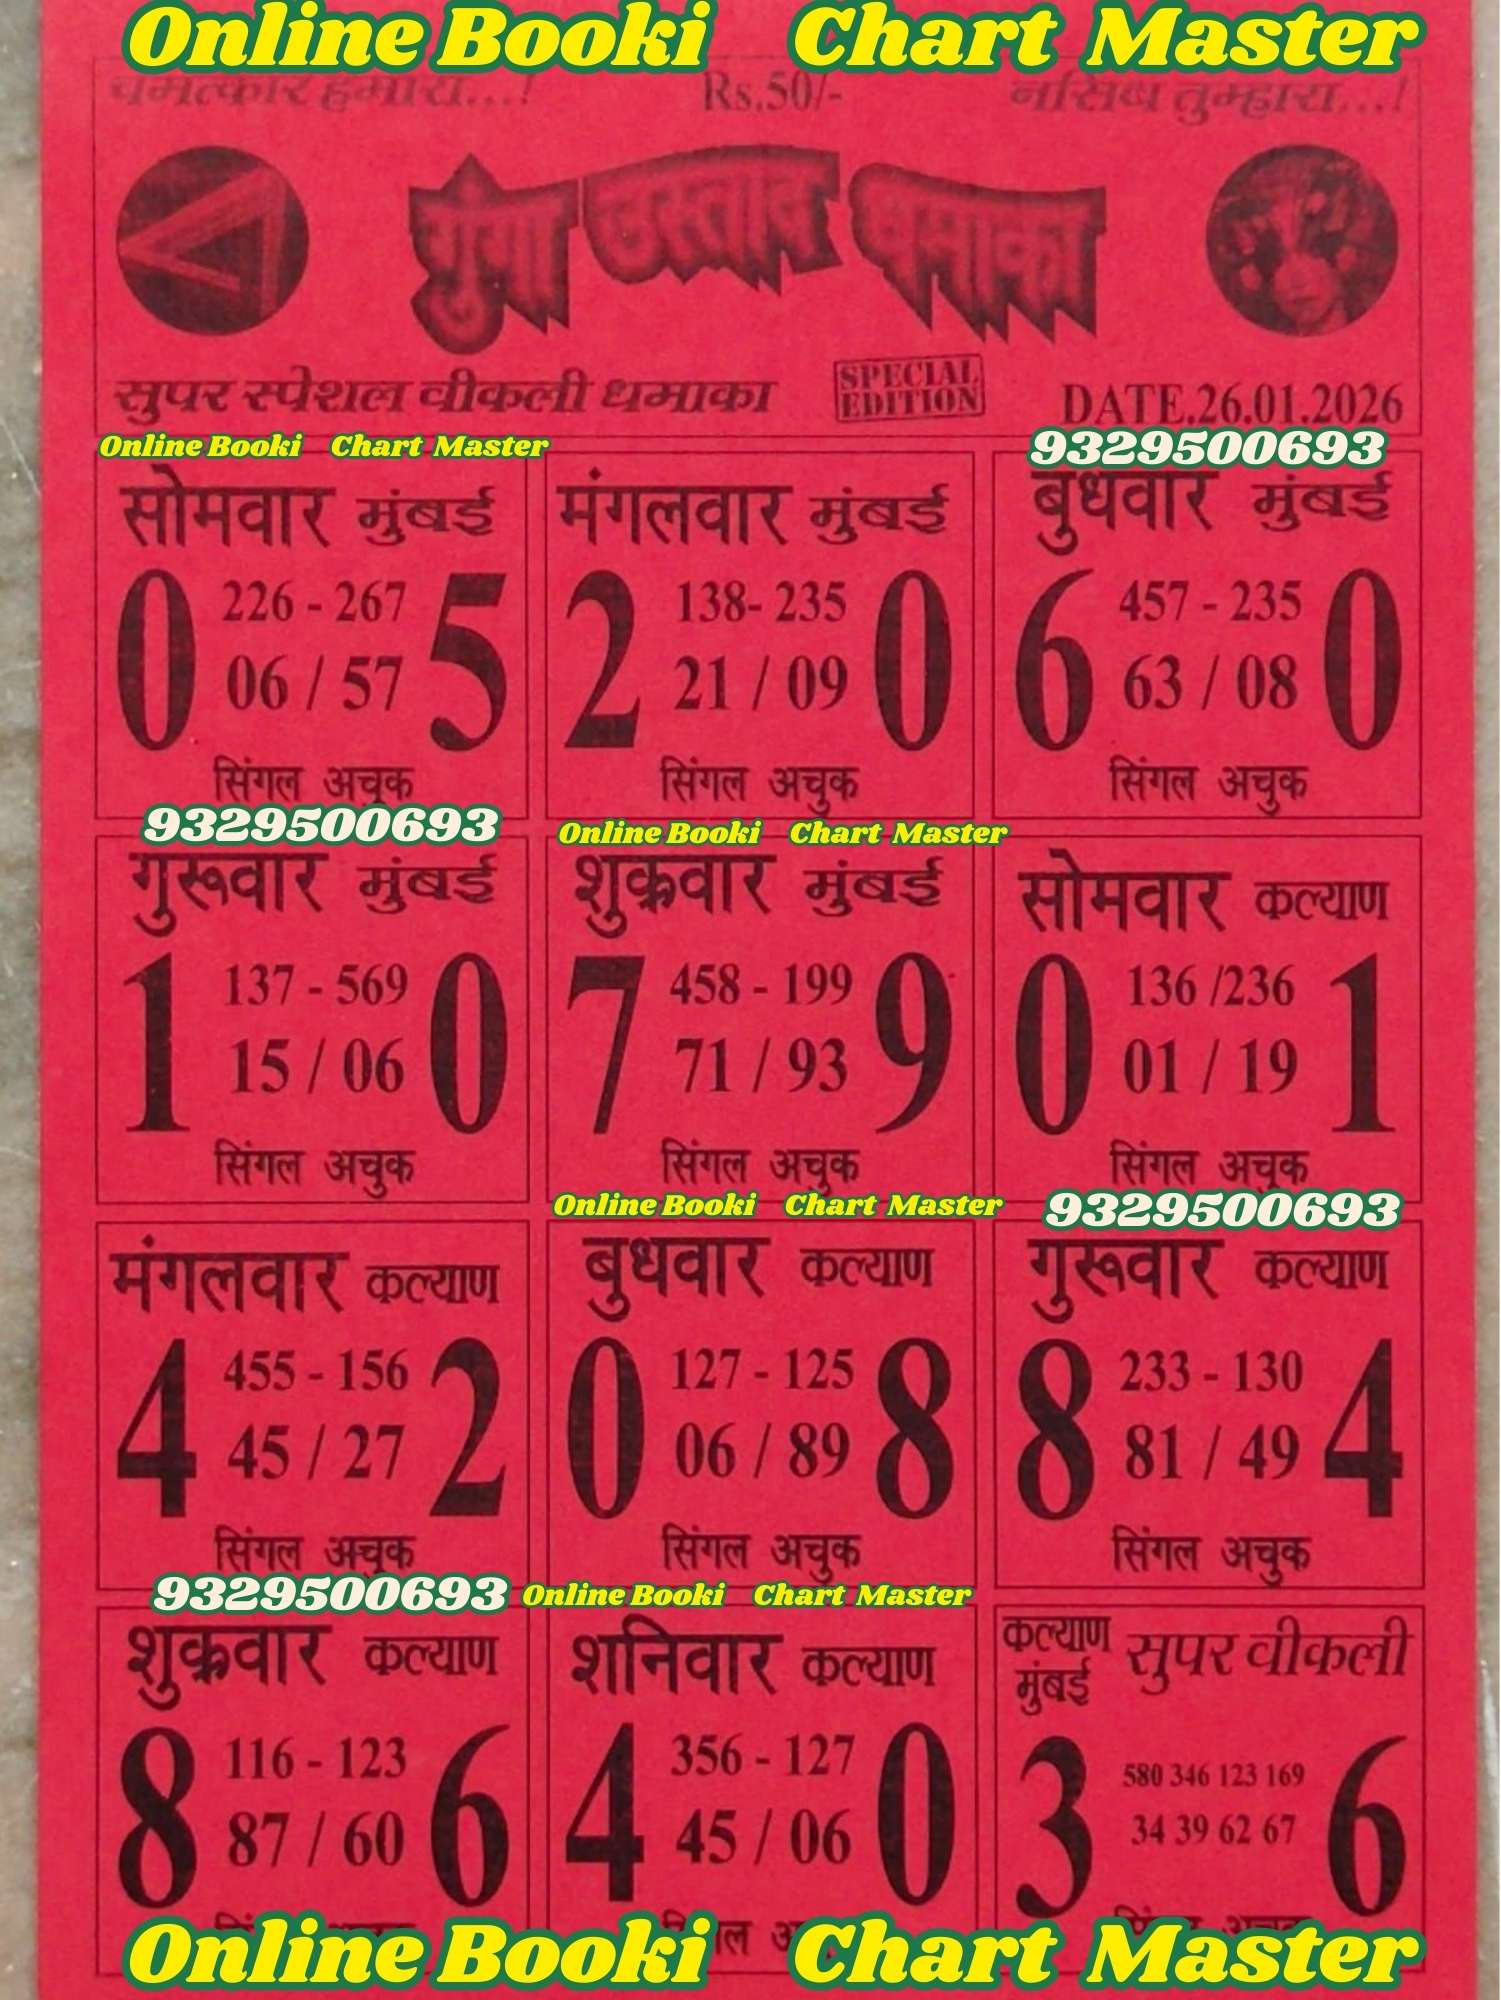 Online Booki Chart Master
चमत्कार हमारा...! Rs.50/- नसिब तुम्हारा...!
गुंगा उस्ताद धमाका
सुपर स्पेशल वीकली धमाका SPECIAL EDITION DATE.26.01.2026
Online Booki Chart Master 9329500693
सोमवार मुंबई
0 226 - 267 5
06 / 57
सिंगल अचुक
मंगलवार मुंबई
2 138- 235 0
21 / 09
सिंगल अचुक
बुधवार मुंबई
6 457 - 235 0
63 / 08
सिंगल अचुक
9329500693 Online Booki Chart Master
गुरूवार मुंबई
1 137 - 569 0
15 / 06
सिंगल अचुक
शुक्रवार मुंबई
7 458 - 199 9
71 / 93
सिंगल अचुक
सोमवार कल्याण
0 136 /236 1
01 / 19
सिंगल अचुक
Online Booki Chart Master 9329500693
मंगलवार कल्याण
4 455 - 156 2
45 / 27
सिंगल अचुक
बुधवार कल्याण
0 127 - 125 8
06 / 89
सिंगल अचुक
गुरूवार कल्याण
8 233 - 130 4
81 / 49
सिंगल अचुक
9329500693 Online Booki Chart Master
शुक्रवार कल्याण
8 116 - 123 6
87 / 60
शनिवार कल्याण
4 356 - 127 0
45 / 06
कल्याण मुंबई सुपर वीकली
3 580 346 123 169 6
34 39 62 67
Online Booki Chart Master